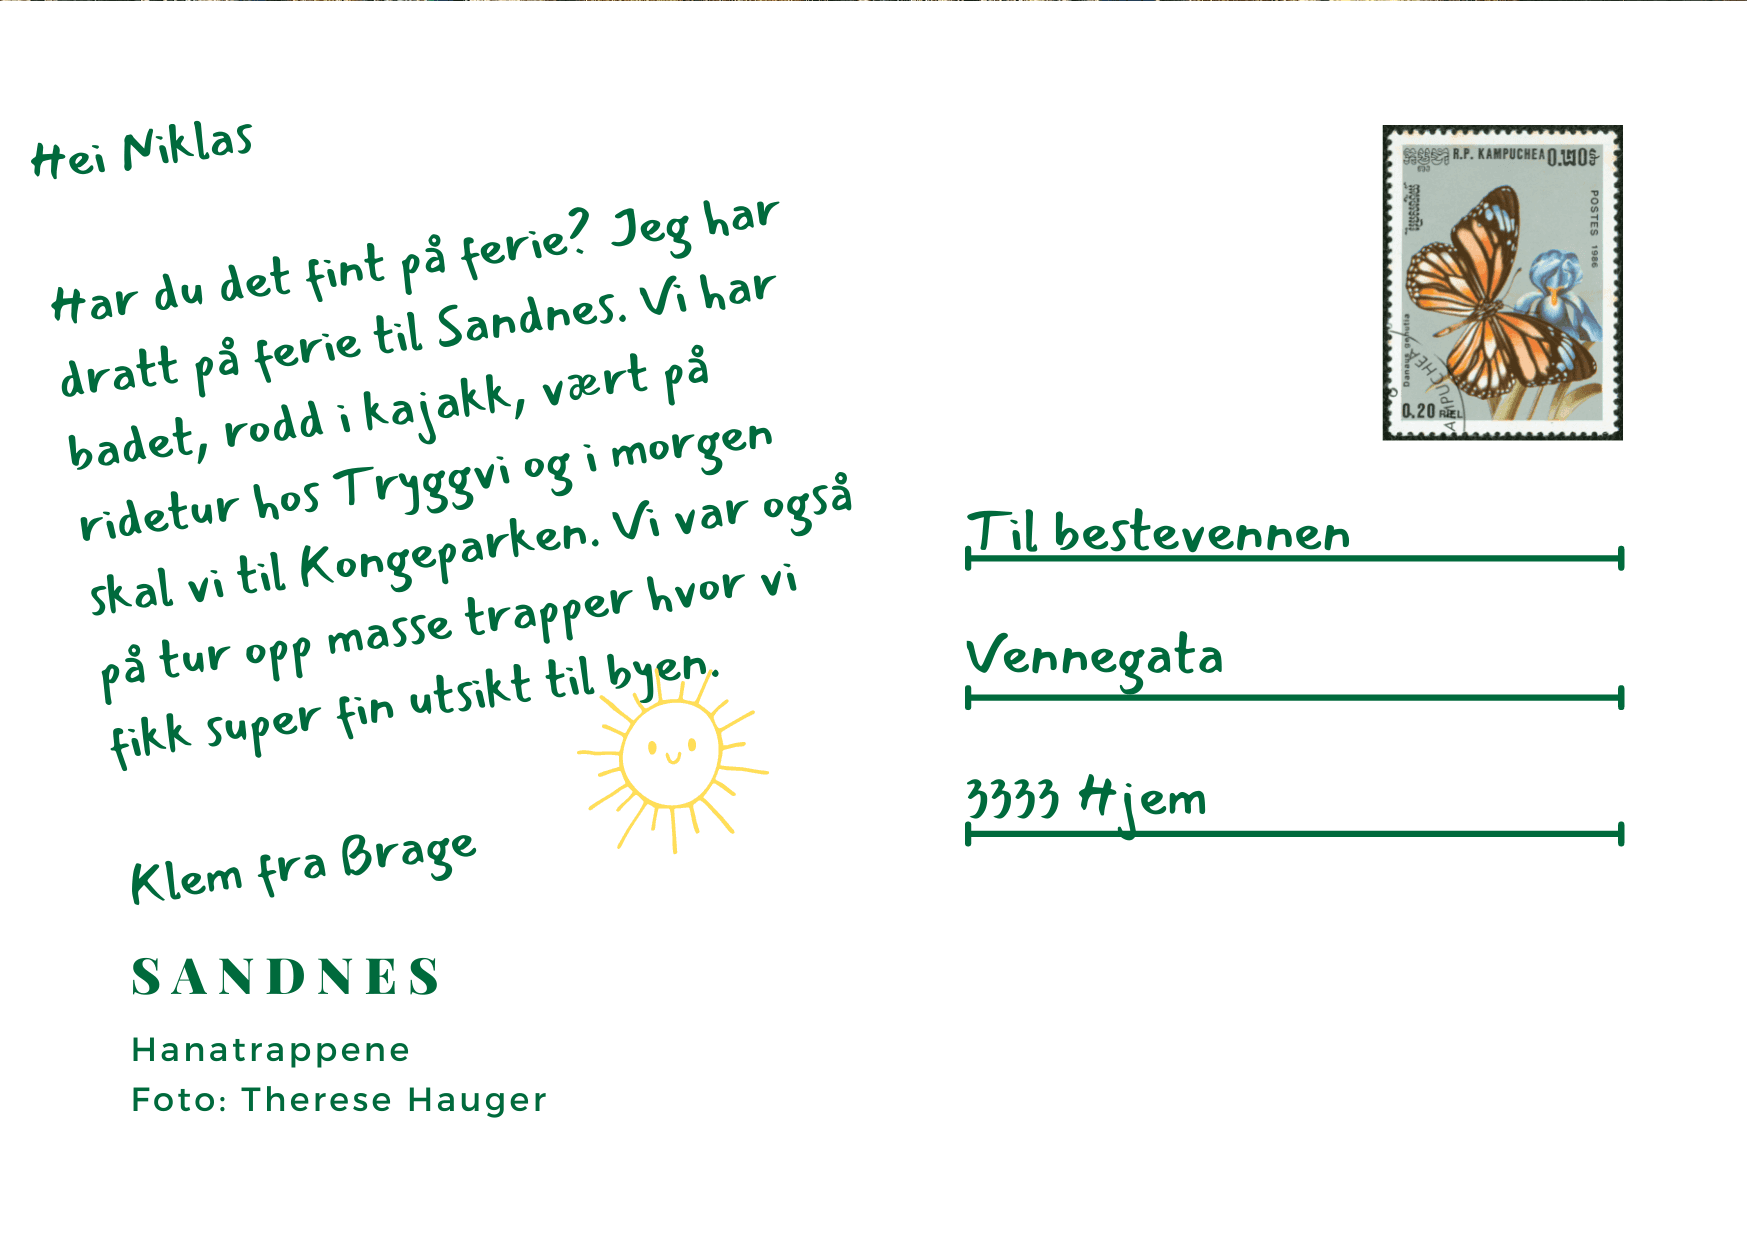 Hei Niklas
Har du det fint på ferie? Jeg har
dratt på ferie til Sandnes. Vi har
badet, rodd i kajakk, vært på
ridetur hos Tryggvi og i morgen
skal vi til Kongeparken. Vi var også
på tur opp masse trapper hvor vi
fikk super fin utsikt til byen.
Klem fra Brage
SANDNES
Hanatrappene
Foto: Therese Hauger
R.P. KAMPUCHEA
POSTES 1986
Danaus genutia
0.20 RIEL
Til bestevennen
Vennegata
3333 Hjem